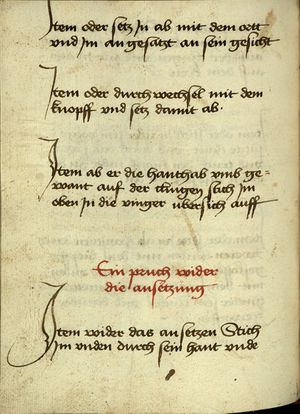 Item oder setz In ab mit dem ortt
und Im angesatzt an sein gesicht
Item oder durchwechsel mit dem
knopff und setz damit ab.
Item ab er die hanthab umb ge-
want auf der klingen stich im
oben in die vinger ubersich auff
Ein pruch wider
die ansetzung
Item wider das ansetzen Stich
Im unden durch sein hant unde